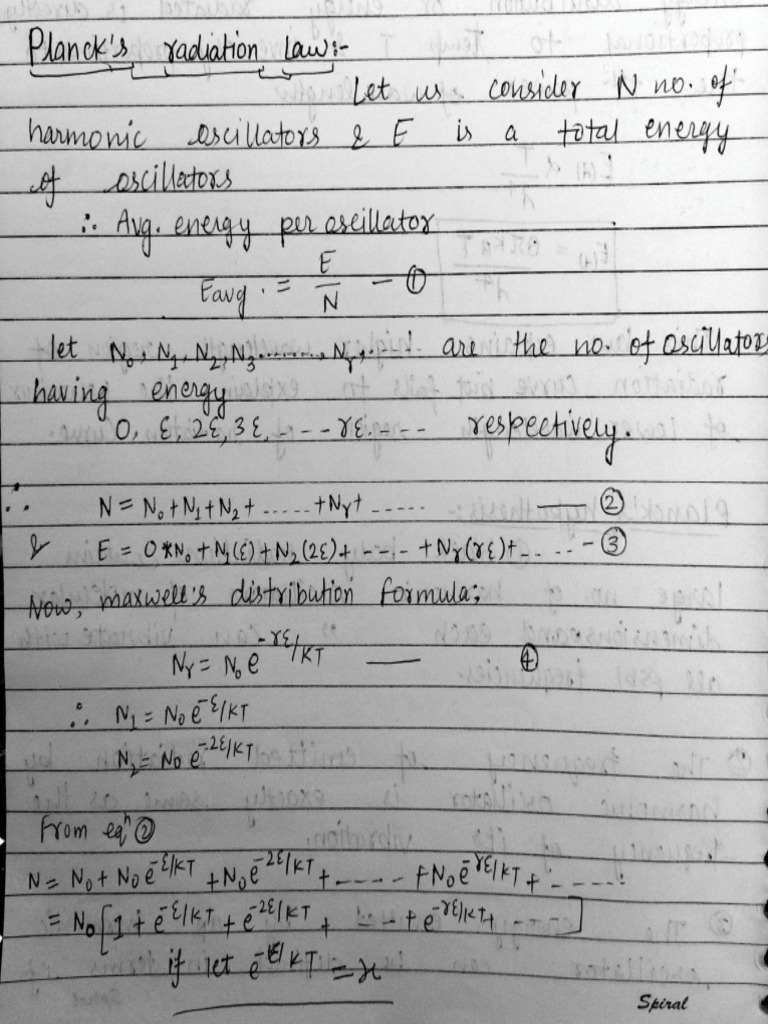 Planck's radiation Law:-
Let us consider N no. of
harmonic oscillators & E is a total energy
of oscillators
∴ Avg. energy per oscillator
Eavg. = E/N — ①
let N₀, N₁, N₂, N₃........, Nᵣ,.... are the no. of oscillators
having energy
0, ε, 2ε, 3ε, - - - rε. - - - respectively.
∴ N = N₀ + N₁ + N₂ + ..... + Nᵣ + ..... — ②
& E = 0*N₀ + N₁(ε) + N₂(2ε) + - - - - + Nᵣ(rε) + .... - ③
Now, maxwell's distribution formula;
Nᵣ = N₀ e^-rε/KT — ④
∴ N₁ = N₀ e^-ε/KT
N₂ = N₀ e^-2ε/KT
From eqⁿ ②
N = N₀ + N₀ e^-ε/KT + N₀ e^-2ε/KT + - - - - + N₀ e^-rε/KT + - - - - -
= N₀ [1 + e^-ε/KT + e^-2ε/KT + - - - + e^-rε/KT + - - ]
if let e^-ε/KT = x
Spiral